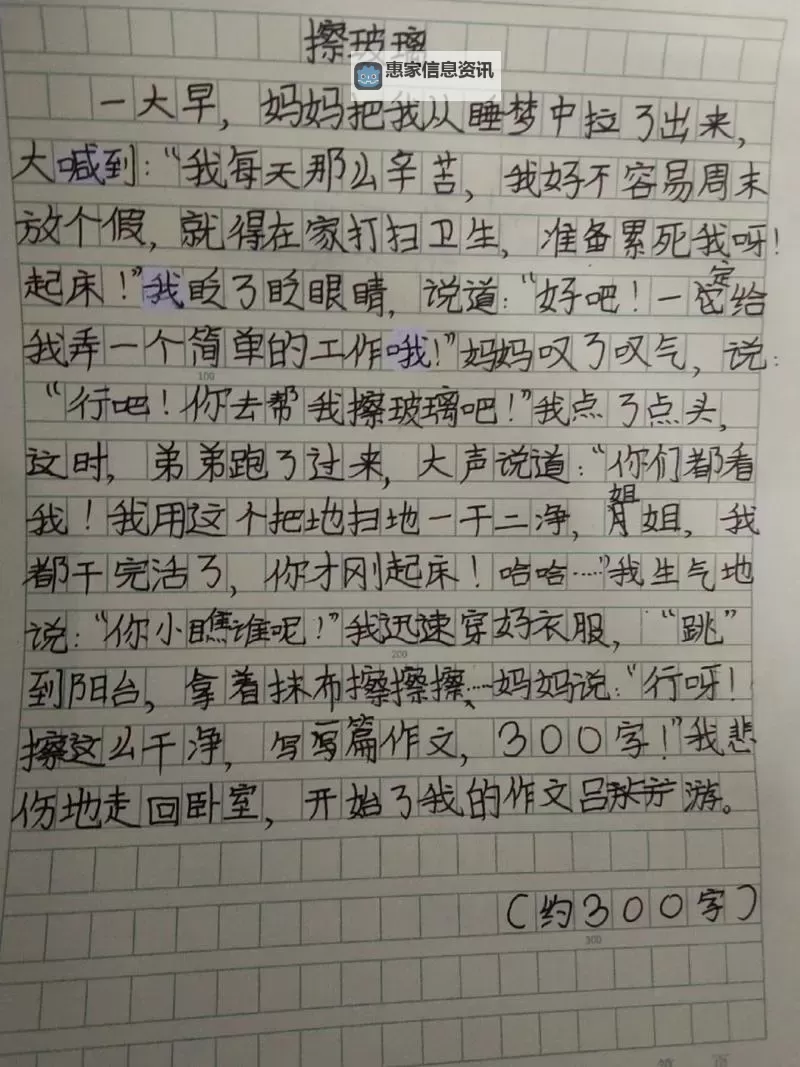 擦玻璃
惠家信息资讯
一大早，妈妈把我从睡梦中拉了出来，
大喊到：“我每天那么辛苦，我好不容易周末
放个假，就得在家打扫卫生，准备累死我呀！
起床！”我眨了眨眼睛，说道：“好吧！一定给
我弄一个简单的工作哦！”妈妈叹了叹气，说：
“行吧！你去帮我擦玻璃吧！”我点了点头，
这时，弟弟跑了过来，大声说道：“你们都看
我！我用这个把地扫地一干二净，姐姐，我
都干完活了，你才刚起床！哈哈……”我生气地
说：“你小瞧谁呢！”我迅速穿好衣服，“跳”
到阳台，拿着抹布擦擦擦……妈妈说：“行呀！
擦这么干净，写写篇作文，300字！”我悲
伤地走回卧室，开始了我的作文游。
（约300字）
100
200
300